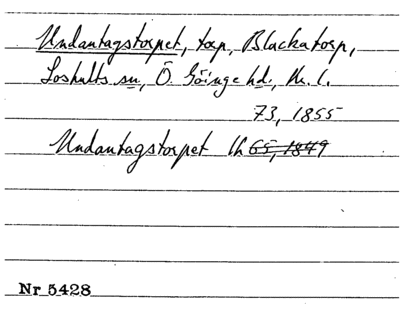 Undantagstorpet, torp, Blackatorp,
Loshults sn, Ö. Göinge hd, Kr. l.
73, 1855
Undantagstorpet lh 65, 1849
Nr 5428